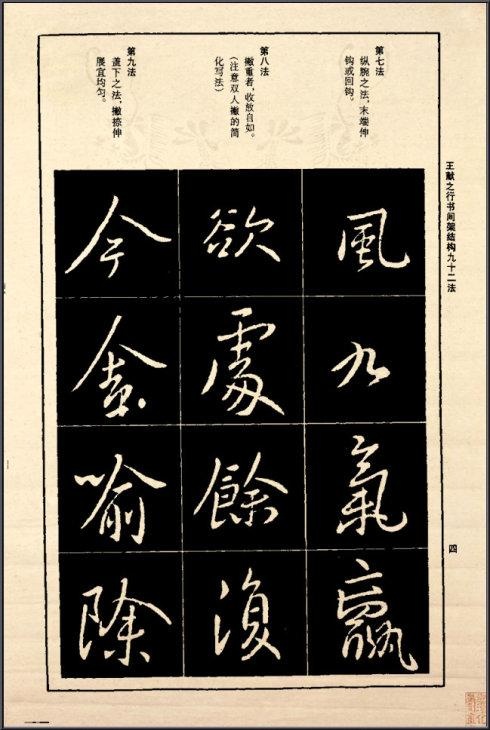 王献之行书间架结构九十二法
四
第七法
纵腕之法，末端伸
钩或回钩。
第八法
撇重者，收放自如。
（注意双人撇的简
化写法）
第九法
盖下之法，撇捺伸
展宜均匀。
風
九
氣
贏
欲
處
餘
復
今
喻
除